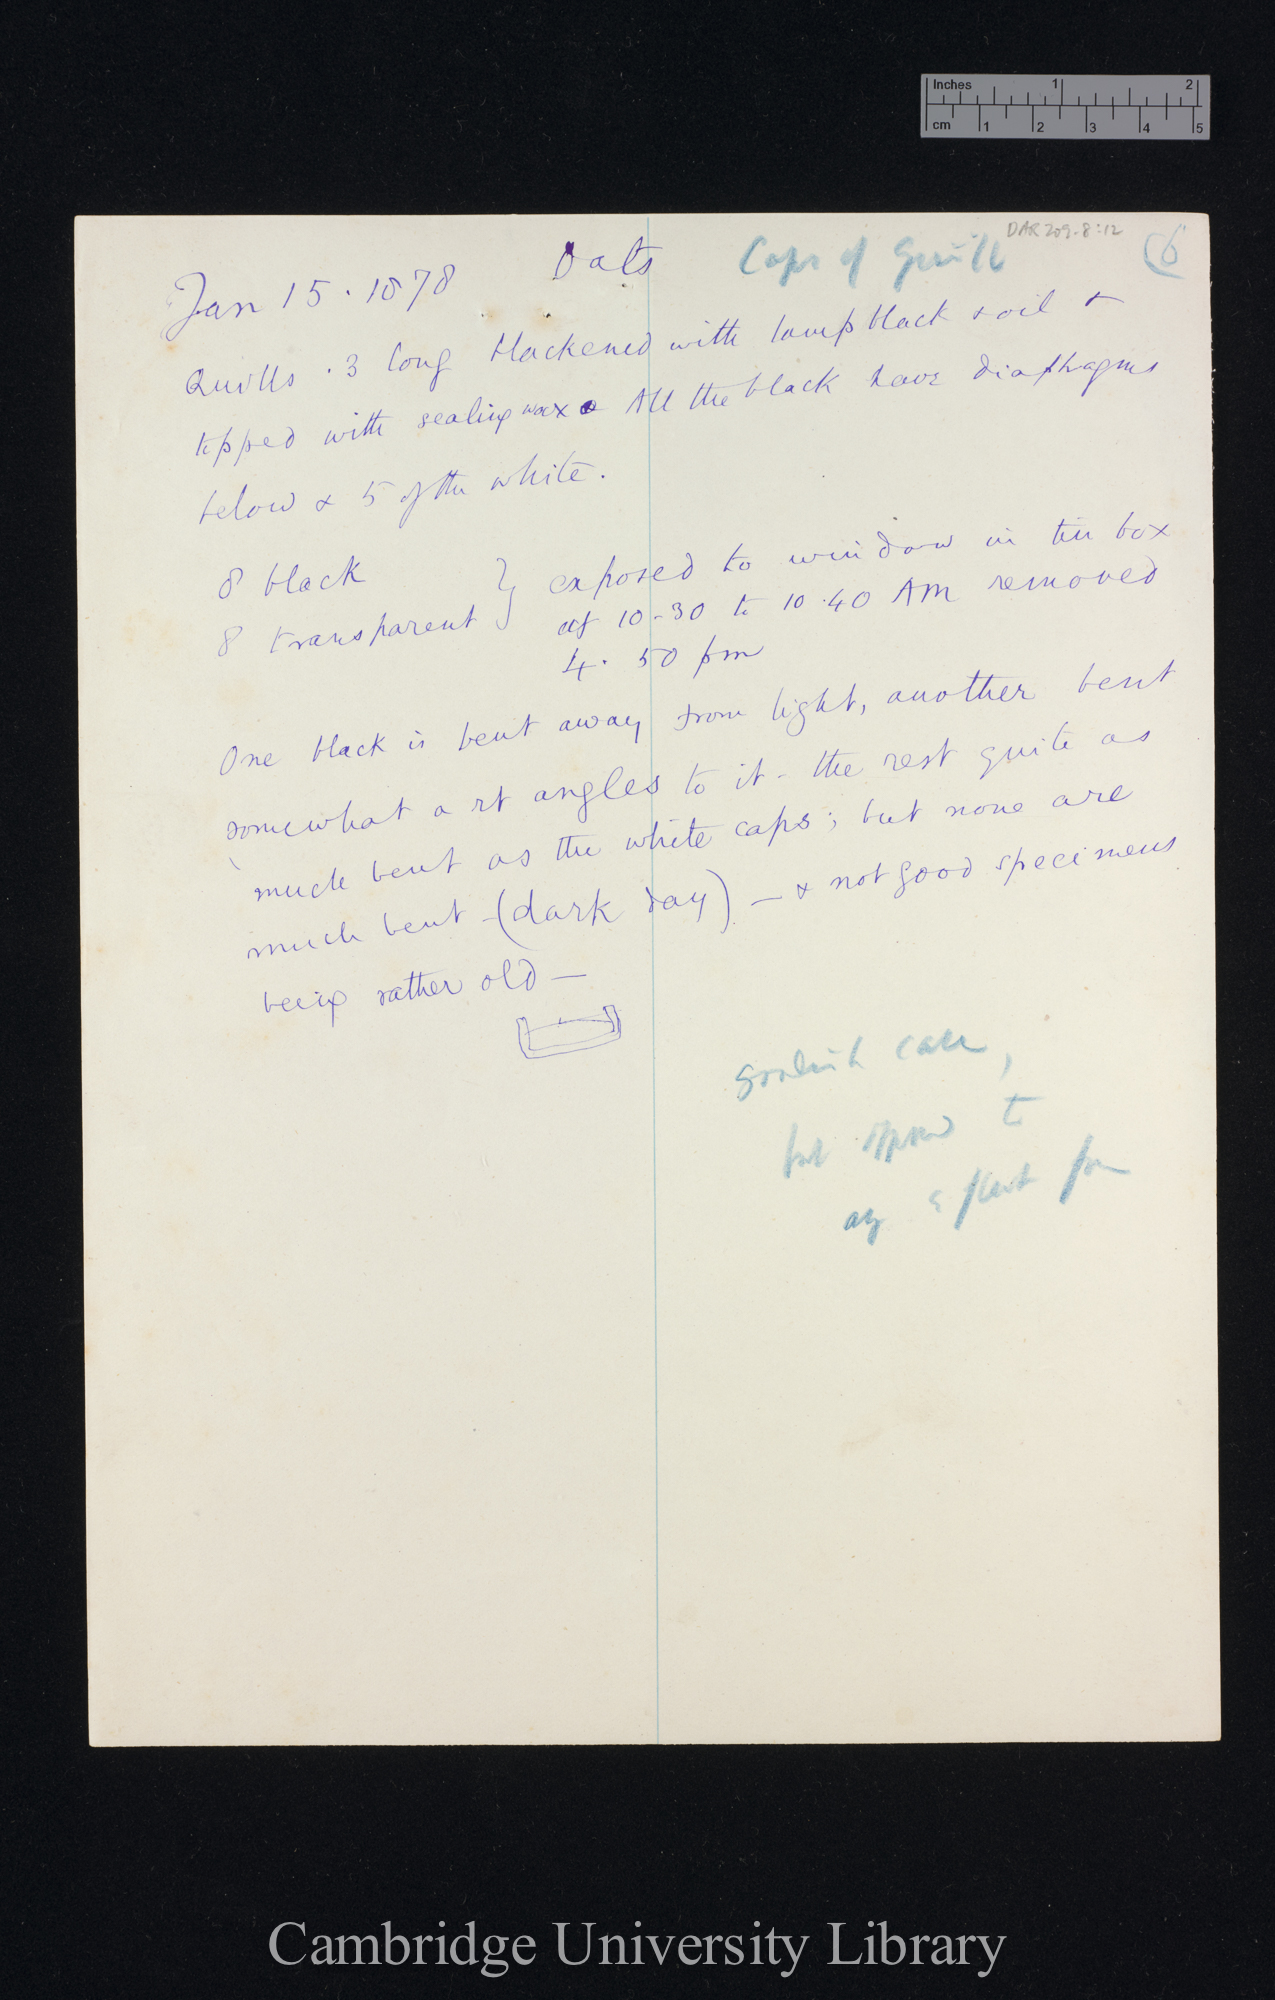 Inches 1 2
cm 1 2 3 4 5
DAR 209.8:12
Jan 15. 1878 Oats Caps of Quill (6
Quills . 3 long blackened with lampblack & oil &
tipped with sealing wax All the black have diaphragms
below & 5 of the white.
8 black } exposed to window in tin box
8 transparent at 10.30 to 10.40 AM removed
4. 50 pm
One black is bent away from light, another bent
somewhat a rt angles to it - the rest quite as
much bent as the white caps; but none are
much bent - (dark day) — & not good specimens
being rather old —
goodish case,
but opposed to
any effect from
Cambridge University Library